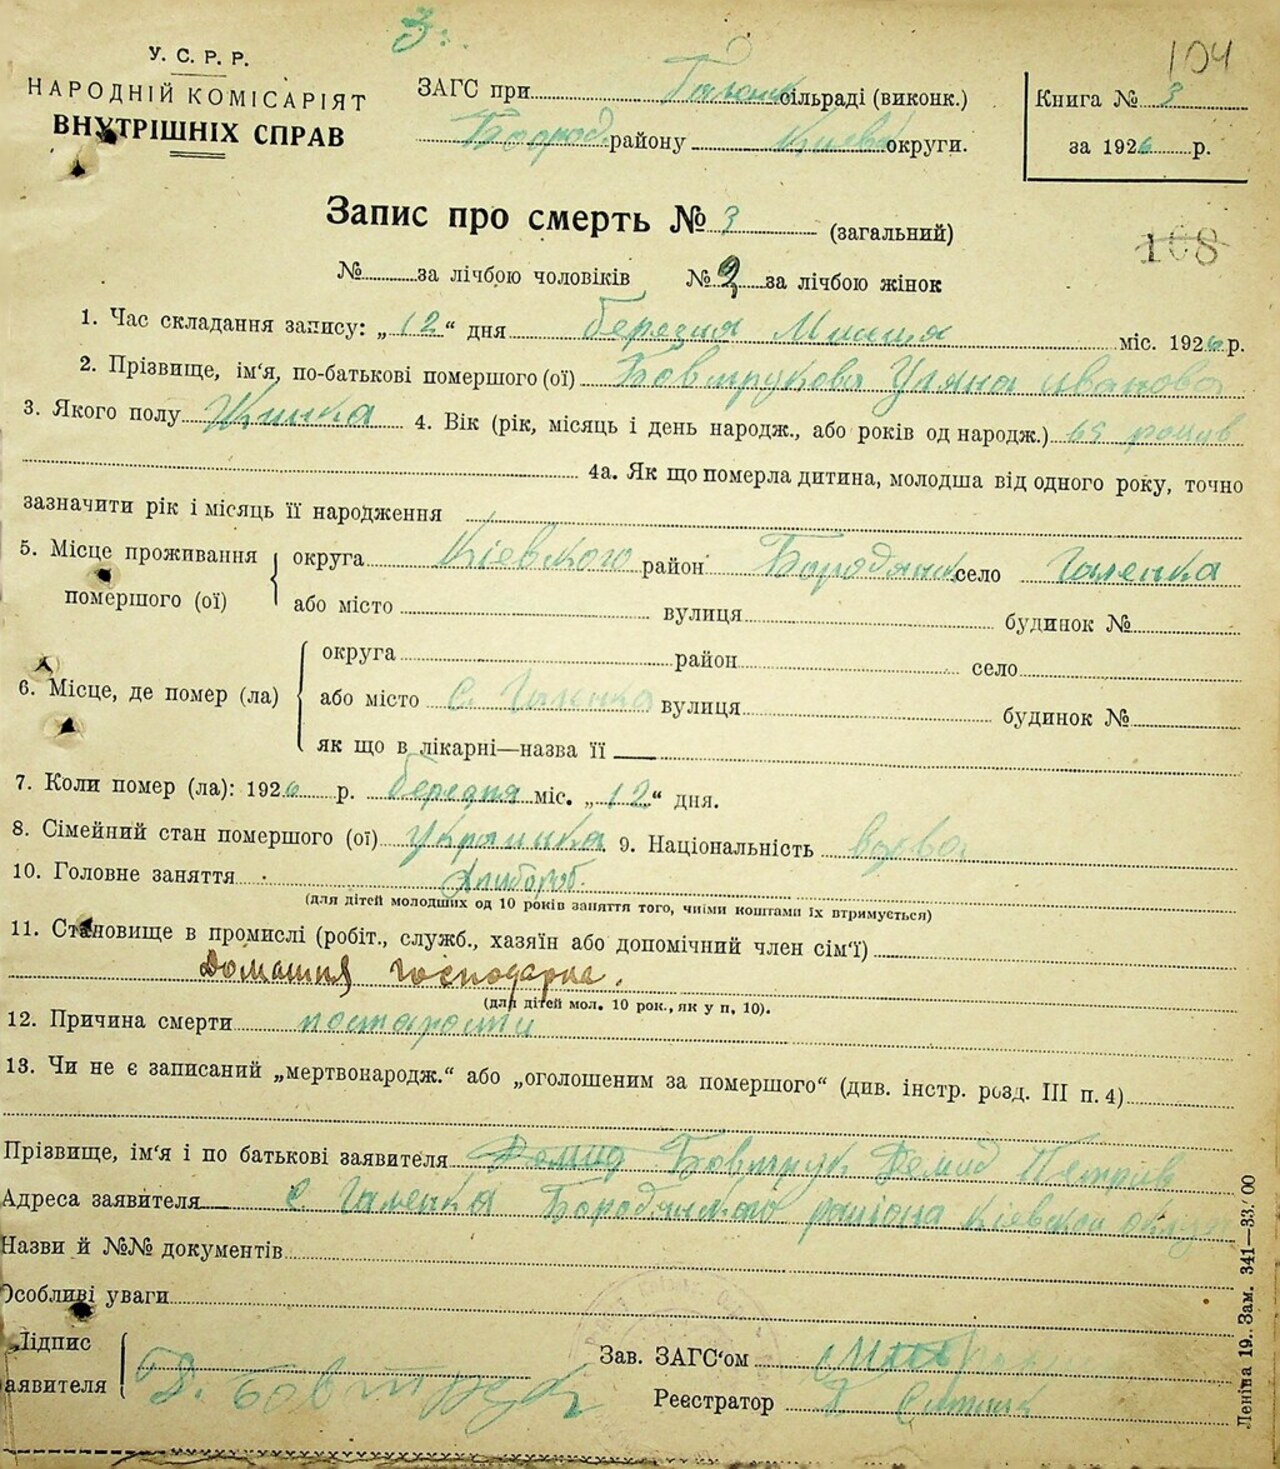 3.
104
У. С. Р. Р.
НАРОДНІЙ КОМІСАРІЯТ
ВНУТРІШНІХ СПРАВ
ЗАГС при сільраді (виконк.)
Бород. району Киевс округи.
Книга № 3
за 1926 р.
Запис про смерть № 3 (загальний)
108
№ за лічбою чоловіків № 2 за лічбою жінок
1. Час складання запису: „12“ дня березня Мисяця міс. 1926 р.
2. Прізвище, ім'я, по-батькові помершого (ої) Бовтрукова Уляна Иванова
3. Якого полу Жинка 4. Вік (рік, місяць і день народж., або років од народж.) 65 рокив
4а. Як що померла дитина, молодша від одного року, точно
зазначити рік і місяць її народження
5. Місце проживання помершого (ої) округа Кіевского район Бородянск село Галенка
або місто вулиця будинок №
6. Місце, де помер (ла) округа район село
або місто С. Галенка вулиця будинок №
як що в лікарні—назва її
7. Коли помер (ла): 1926 р. березня міс. „12“ дня.
8. Сімейний стан помершого (ої) Украинка 9. Національність вдова
10. Головне заняття Хлибороб.
(для дітей молодших од 10 років заняття того, чиїми коштами їх втримується)
11. Становище в промислі (робіт., служб., хазяїн або допомічний член сім'ї)
Домашня господарка.
(для дітей мол. 10 рок., як у п. 10).
12. Причина смерти постарости
13. Чи не є записаний „мертвонародж.“ або „оголошеним за помершого“ (див. інстр. розд. III п. 4)
Прізвище, ім'я і по батькові заявителя Демид Бовтрук Демид Петрив
Адреса заявителя С. Галенка Бородянского раиона Кіевской округ
Назви й №№ документів
Особливі уваги
Підпис заявителя Д. Бовтрук
Зав. ЗАГС'ом
Реєстратор
Леніна 19. Зам. 341—33.